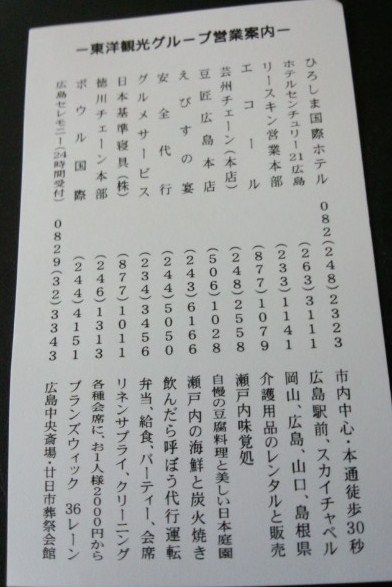 ー東洋観光グループ営業案内ー
ひろしま国際ホテル 082(248)2323 市内中心・本通徒歩30秒
ホテルセンチュリー21広島 (263)3111 広島駅前、スカイチャペル
リースキン営業本部 (233)1141 岡山、広島、山口、島根県
エコール (877)1079 介護用品のレンタルと販売
芸州チェーン(本店) (248)2558 瀬戸内味覚処
豆匠広島本店 (506)1028 自慢の豆腐料理と美しい日本庭園
えびすの宴 (243)6166 瀬戸内の海鮮と炭火焼き
安全代行 (244)5050 飲んだら呼ぼう代行運転
グルメサービス (234)3456 弁当、給食、パーティー、会席
日本基準寝具(株) (877)1011 リネンサプライ、クリーニング
徳川チェーン本部 (246)1313 各種会席に、お1人様2000円から
ボウル国際 (244)4151 ブランズウィック 36レーン
広島セレモニー(24時間受付) 0829(32)3343 広島中央斎場・廿日市葬祭会館